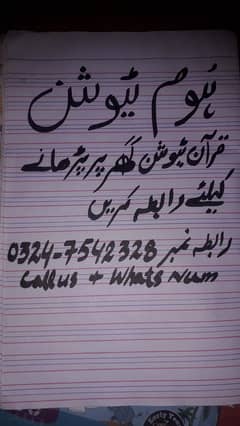 ہوم ٹیوشن
قرآن ٹیوشن گھر پر پڑھانے
کیلئے رابطہ کریں
رابطہ نمبر 0324-7542328
Call us + Whats Num